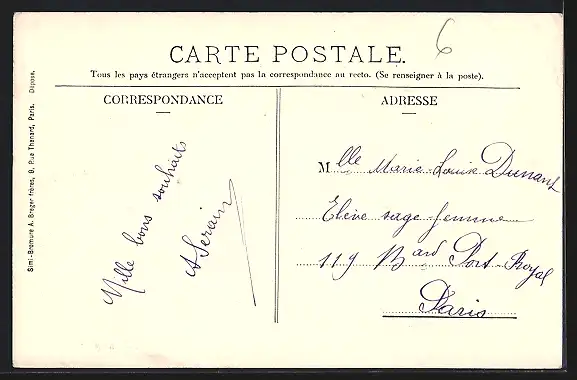 6
CARTE POSTALE.
Tous les pays étrangers n'acceptent pas la correspondance au recto. (Se renseigner à la poste).
CORRESPONDANCE
Mille bons souhaits
A Serain
ADRESSE
Mlle Marie-Louise Dunant
Elève sage-femme
119 Bard Port-Royal
Paris
Simi-Bromure A. Breger frères, 9, Rue Thénard, Paris. Déposé.